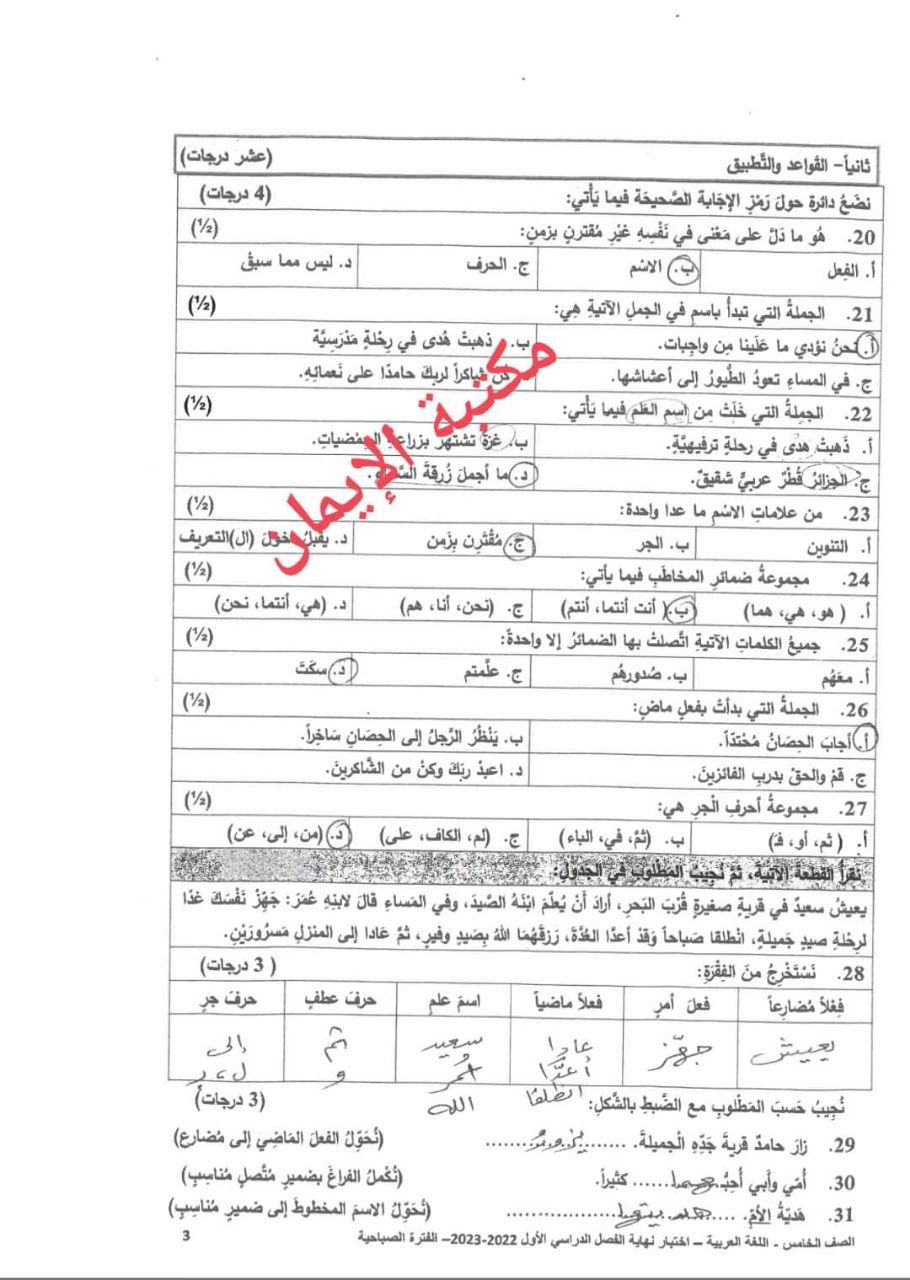 ثانياً- القَواعد والتَّطبيق (عشر درجات)
نضَعُ دائرة حولَ رَمْزِ الإجَابة الصَّحيحَة فيما يَأْتي: (4 درجات)
20. هُو ما دَلَّ على مَعْنى في نَفْسِهِ غَيْرِ مُقترنٍ بزمنٍ: (½)
أ. الفِعل ب. الاسْم ج. الحرف د. ليس مما سبقَ
21. الجملةُ التي تبدأُ باسمٍ في الجملِ الآتيةِ هِي: (½)
أ. نحنُ نؤدي ما عَلَينا مِن واجِبات. ب. ذهبتْ هُدى في رِحْلةٍ مَدْرَسِيَّة
ج. في المساءِ تعودُ الطُّيورُ إلى أعشاشها. كُن شاكراً لربكَ حامدًا على نَعمائِهِ.
22. الجملةُ التي خَلَتْ مِن اسمِ العَلَم فيما يَأْتي: (½)
أ. ذَهبتْ هُدَى في رحلةٍ ترفيهيَّةٍ. ب. غزةُ تشتهرُ بزراعةِ الحمضياتِ.
ج. الجزائرُ قُطْرٌ عربيٌّ شقيقٌ. د. ما أجملَ زُرقةَ السَّماءِ.
23. من علاماتِ الاسْمِ ما عدا واحدة: (½)
أ. التنوين ب. الجر ج. مُقْتَرِن بِزَمن د. يقبلُ دخولَ (ال)التعريف
24. مجموعةُ ضمائرِ المخاطَبِ فيما يأتي: (½)
أ. (هو، هي، هما) ب. (أنت أنتما، أنتم) ج. (نحن، أنا، هم) د. (هي، أنتما، نحن)
25. جميعُ الكلماتِ الآتيةِ اتَّصلتْ بها الضمائرُ إلا واحدةً: (½)
أ. معَهُم ب. صُدورهُم ج. علَّمتم د. سكَتَ
26. الجملةُ التي بدأتْ بفعلٍ ماضٍ: (½)
أ. أجابَ الحِصَانُ مُحْتدّاً. ب. يَنْظُرُ الرَّجلُ إلى الحِصَانِ سَاخِراً.
ج. قمْ والحقْ بدربِ الفائزينَ. د. اعبدْ ربَكَ وكنْ من الشَّاكرينَ.
27. مجموعةُ أحرفِ الْجرِ هي: (½)
أ. (ثم، أو، فَـ) ب. (ثمَّ، في، الباء) ج. (لم، الكاف، على) د. (من، إلى، عن)
نقرأُ القطعةَ الآتيةَ، ثمَّ نُجيبُ المَطلوب في الجَدولِ:
يعيشُ سعيدٌ في قريةٍ صغيرةٍ قُرْبَ البَحرِ، أرادَ أنْ يُعلّمَ ابْنَهُ الصَّيدَ، وفي المَساءِ قالَ لابنِهِ عُمَرَ: جَهّزْ نَفْسَكَ غدًا
لرِحْلةِ صيدٍ جَميلةٍ، انْطلقا صَباحاً وَقدْ أعدَّا العُدَّةَ، رَزقَهُمَا اللهُ بِصَيدٍ وفيرٍ، ثمَّ عَادا إلى المنزلِ مَسرُورَيْنِ.
28. نَسْتَخْرِجُ منَ الفِقْرَةِ: (3 درجات)
فِعْلاً مُضارِعاً فعلَ أمرٍ فعلاً ماضياً اسمَ علمٍ حرفَ عطفٍ حرفَ جرٍ
يعيش جهّز عادا سعيد ثم إلى
أعدّا و عمر و ل، بـ
انطلقا الله
نُجيبُ حَسبَ المَطْلوبِ مع الضَّبطِ بالشَّكلِ: (3 درجات)
29. زارَ حامدٌ قريةَ جَدِّهِ الْجميلةَ. ........يزور........ (نُحَوِّلُ الفعلَ المَاضِيَ إلى مُضارع)
30. أُمّي وأبي أُحِبُّـهما...... كثيراً. (نُكْملُ الفراغَ بضميرٍ مُتَّصلٍ مُناسبٍ)
31. هَديّةُ الأمّ. ....هديتها.................... (نُحَوِّلُ الاسمَ المخطوطَ إلى ضميرٍ مُناسبٍ)
الصف الخامس - اللغة العربية – اختبار نهاية الفصل الدراسي الأول 2022-2023– الفترة الصباحية 3
مكتبة الإيمان